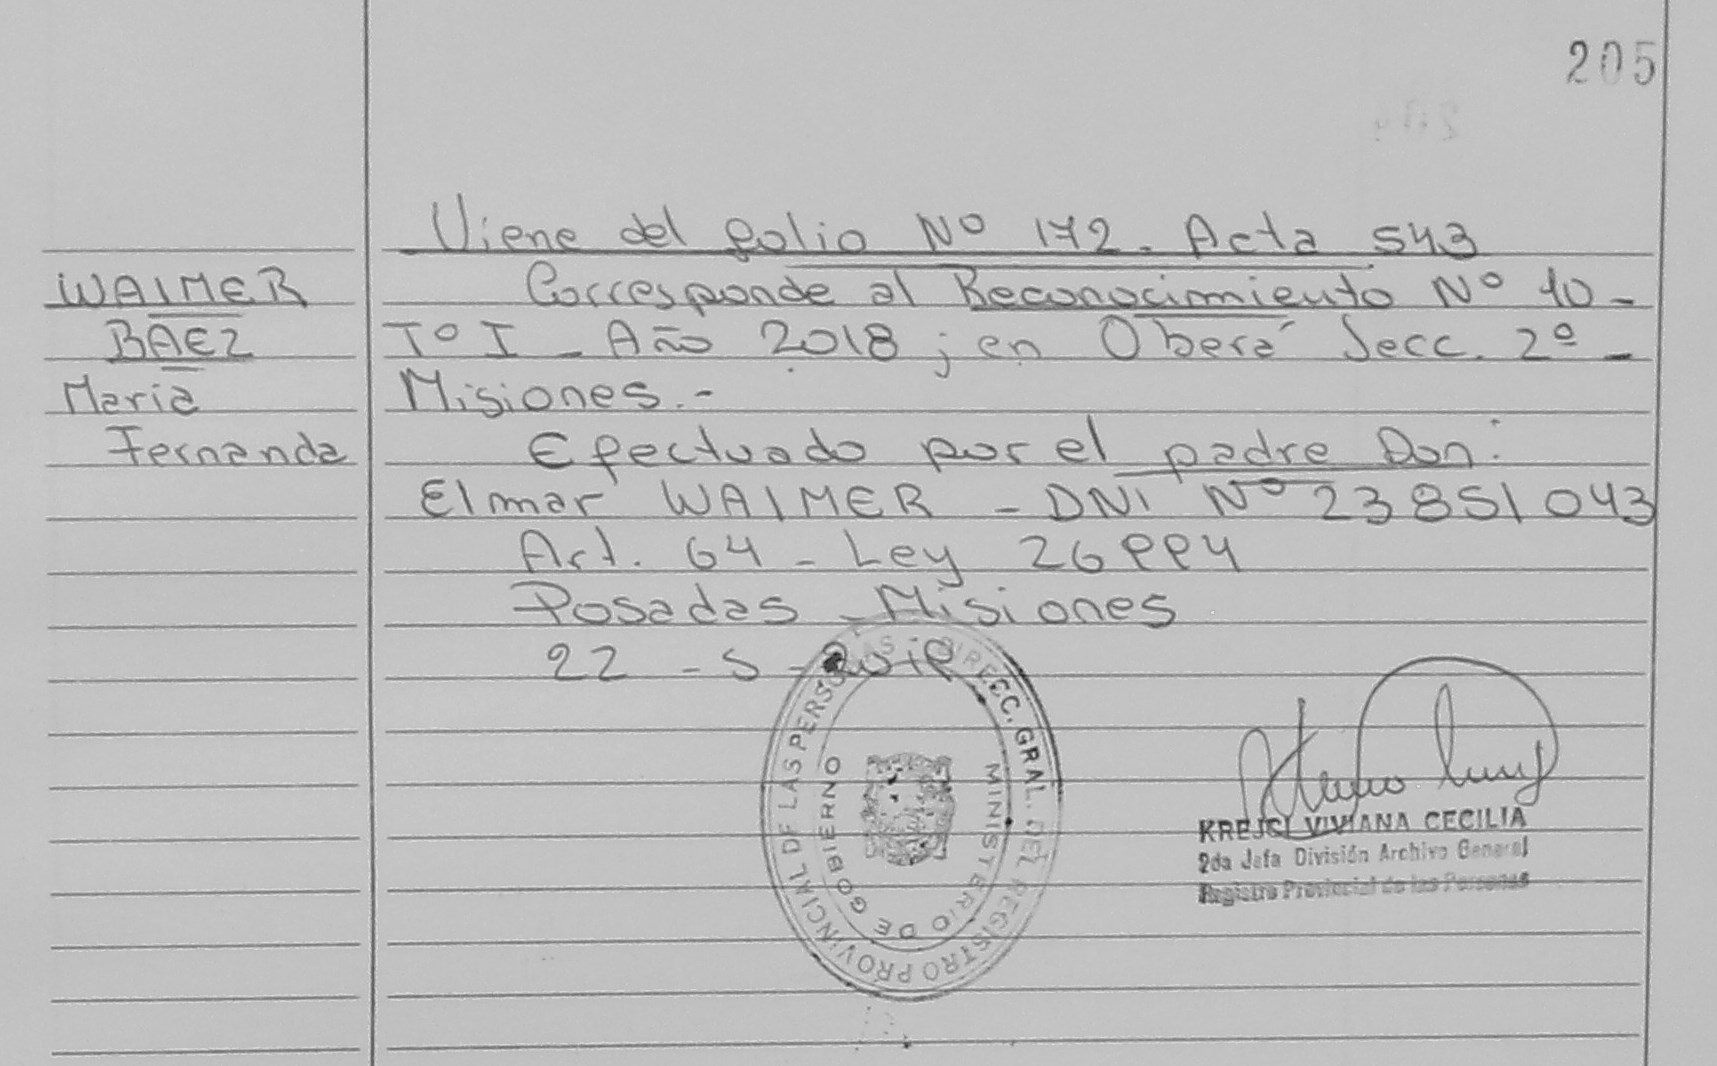 205
Viene del folio Nº 172. Acta 543
WAIMER
BAEZ
Maria
Fernanda
Corresponde al Reconocimiento Nº 10 -
Tº I - Año 2018; en Oberá Secc. 2º -
Misiones.-
Efectuado por el padre Don:
Elmar WAIMER - DNI Nº 23851043
Art. 64 - Ley 26994
Posadas - Misiones
22 - 5 -
DIRECC. GRAL. DEL REGISTRO PROVINCIAL DE LAS PERSONAS
MINISTERIO DE GOBIERNO
KREJCI VIVIANA CECILIA
2da Jefa División Archivo General
Registro Provincial de las Personas